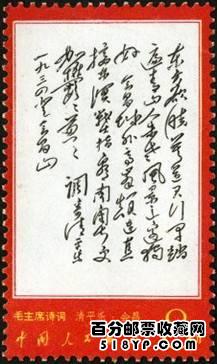 东方欲晓莫道君行早踏
遍青山人未老风景这边独
好会昌城外高峰颠连直
接东溟战士指看南粤更
加郁郁葱葱 调寄清平乐
一九三四年登会昌山
毛主席诗词 清平乐 会昌
8
中国人民
百分邮票钱币网
518YP.com